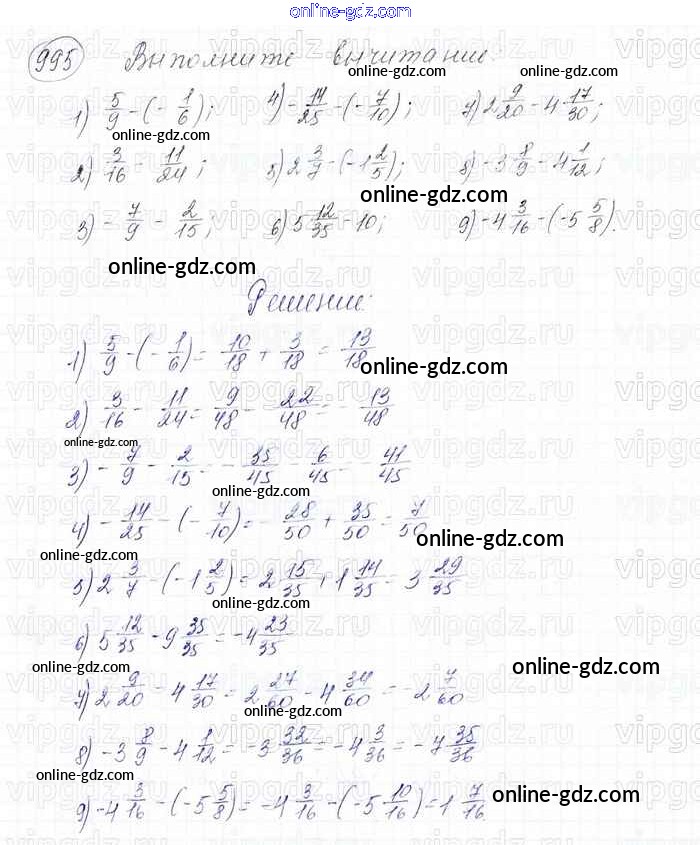 online-gdz.com
995 Выполните вычитание.
online-gdz.com online-gdz.com
1) 5/9 - (- 1/6); 4) - 14/25 - (- 7/10); 7) 2 9/20 - 4 17/30;
online-gdz.com
2) 3/16 - 11/24; 5) 2 3/7 - (-1 2/5); 8) -3 8/9 - 4 1/12;
online-gdz.com
3) - 7/9 - 2/15; 6) 5 12/35 - 10; 9) -4 3/16 - (-5 5/8).
online-gdz.com
Решение:
1) 5/9 - (- 1/6) = 10/18 + 3/18 = 13/18
online-gdz.com
2) 3/16 - 11/24 = 9/48 - 22/48 = - 13/48
online-gdz.com
3) - 7/9 - 2/15 = - 35/45 - 6/45 = - 41/45
online-gdz.com
4) - 14/25 - (- 7/10) = - 28/50 + 35/50 = 7/50
online-gdz.com
online-gdz.com
5) 2 3/7 - (-1 2/5) = 2 15/35 + 1 14/35 = 3 29/35
online-gdz.com
6) 5 12/35 - 9 35/35 = -4 23/35
online-gdz.com online-gdz.com
7) 2 9/20 - 4 17/30 = 2 27/60 - 4 34/60 = -2 7/60
online-gdz.com
8) -3 8/9 - 4 1/12 = -3 32/36 = -4 3/36 = -7 35/36
online-gdz.com
9) -4 3/16 - (-5 5/8) = -4 3/16 - (-5 10/16) = 1 7/16
online-gdz.com
vipgdz.ru